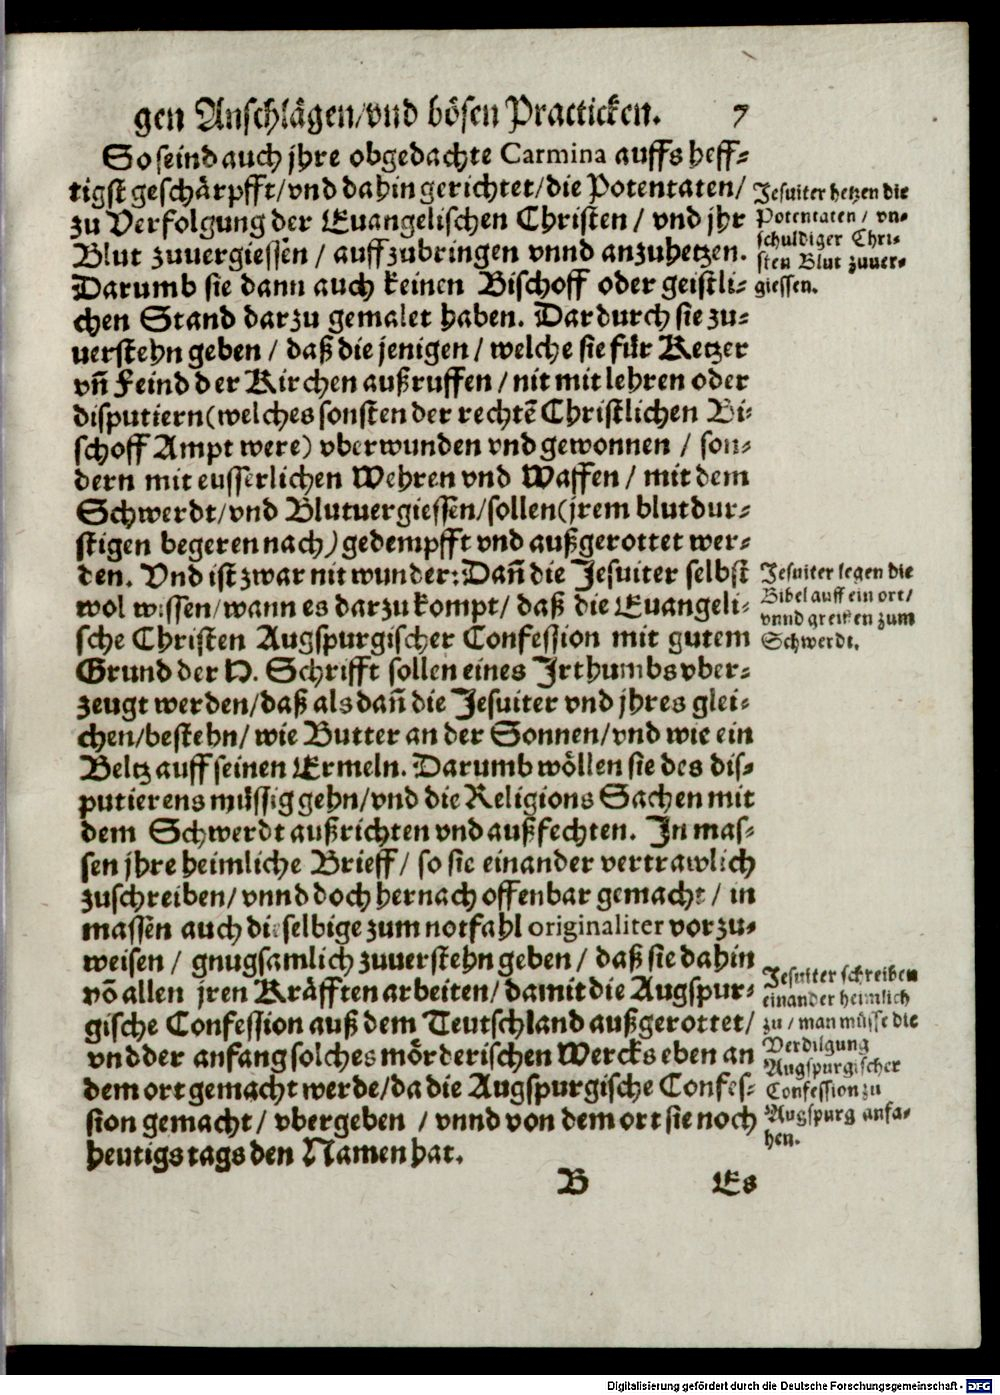 gen Anschlägen/vnd bösen Practicken. 7
So seind auch jhre obgedachte Carmina auffs heff-
tigst geschärpfft/vnd dahin gerichtet/die Potentaten/
zu Verfolgung der Euangelischen Christen / vnd jhr
Blut zuuergiessen / auffzubringen vnnd anzuhetzen.
Darumb sie dann auch keinen Bischoff oder geistli-
chen Stand darzu gemalet haben. Dardurch sie zu-
uerstehn geben / daß die jenigen / welche sie für Ketzer
vn̄ Feind der Kirchen außruffen / nit mit lehren oder
disputiern (welches sonsten der rechtē Christlichen Bi-
schoff Ampt were) vberwunden vnd gewonnen / son-
dern mit eusserlichen Wehren vnd Waffen / mit dem
Schwerdt/vnd Blutuergiessen/sollen (jrem blutdur-
stigen begeren nach) gedempfft vnd außgerottet wer-
den. Vnd ist zwar nit wunder: Dan̄ die Jesuiter selbst
wol wissen/wann es darzu kompt/ daß die Euangeli-
sche Christen Augspurgischer Confession mit gutem
Grund der H. Schrifft sollen eines Irthumbs vber-
zeugt werden/daß als dan̄ die Jesuiter vnd jhres glei-
chen/bestehn/ wie Butter an der Sonnen/vnd wie ein
Beltz auff seinen Ermeln. Darumb wöllen sie des dis-
putierens müssig gehn/vnd die Religions Sachen mit
dem Schwerdt außrichten vnd außfechten. In mas-
sen jhre heimliche Brieff/ so sie einander vertrawlich
zuschreiben/ vnnd doch hernach offenbar gemacht / in
massen auch dieselbige zum notfahl originaliter vorzu-
weisen / gnugsamlich zuuerstehn geben / daß sie dahin
vō allen jren Kräfften arbeiten/ damit die Augspur-
gische Confession auß dem Teutschland außgerottet/
vnd der anfang solches mörderischen Wercks eben an
dem ort gemacht werde/da die Augspurgische Confes-
sion gemacht / vbergeben / vnnd von dem ort sie noch
heutigs tags den Namen hat.
B Es
Jesuiter hetzen die
Potentaten / vn-
schuldiger Chri-
sten Blut zuuer-
giessen.
Jesuiter legen die
Bibel auff ein ort/
vnnd greiffen zum
Schwerdt.
Jesuiter schreiben
einander heimlich
zu / man müsse die
Verdilgung
Augspurgischer
Confession zu
Augspurg anfa-
hen.
Digitalisierung gefördert durch die Deutsche Forschungsgemeinschaft - DFG